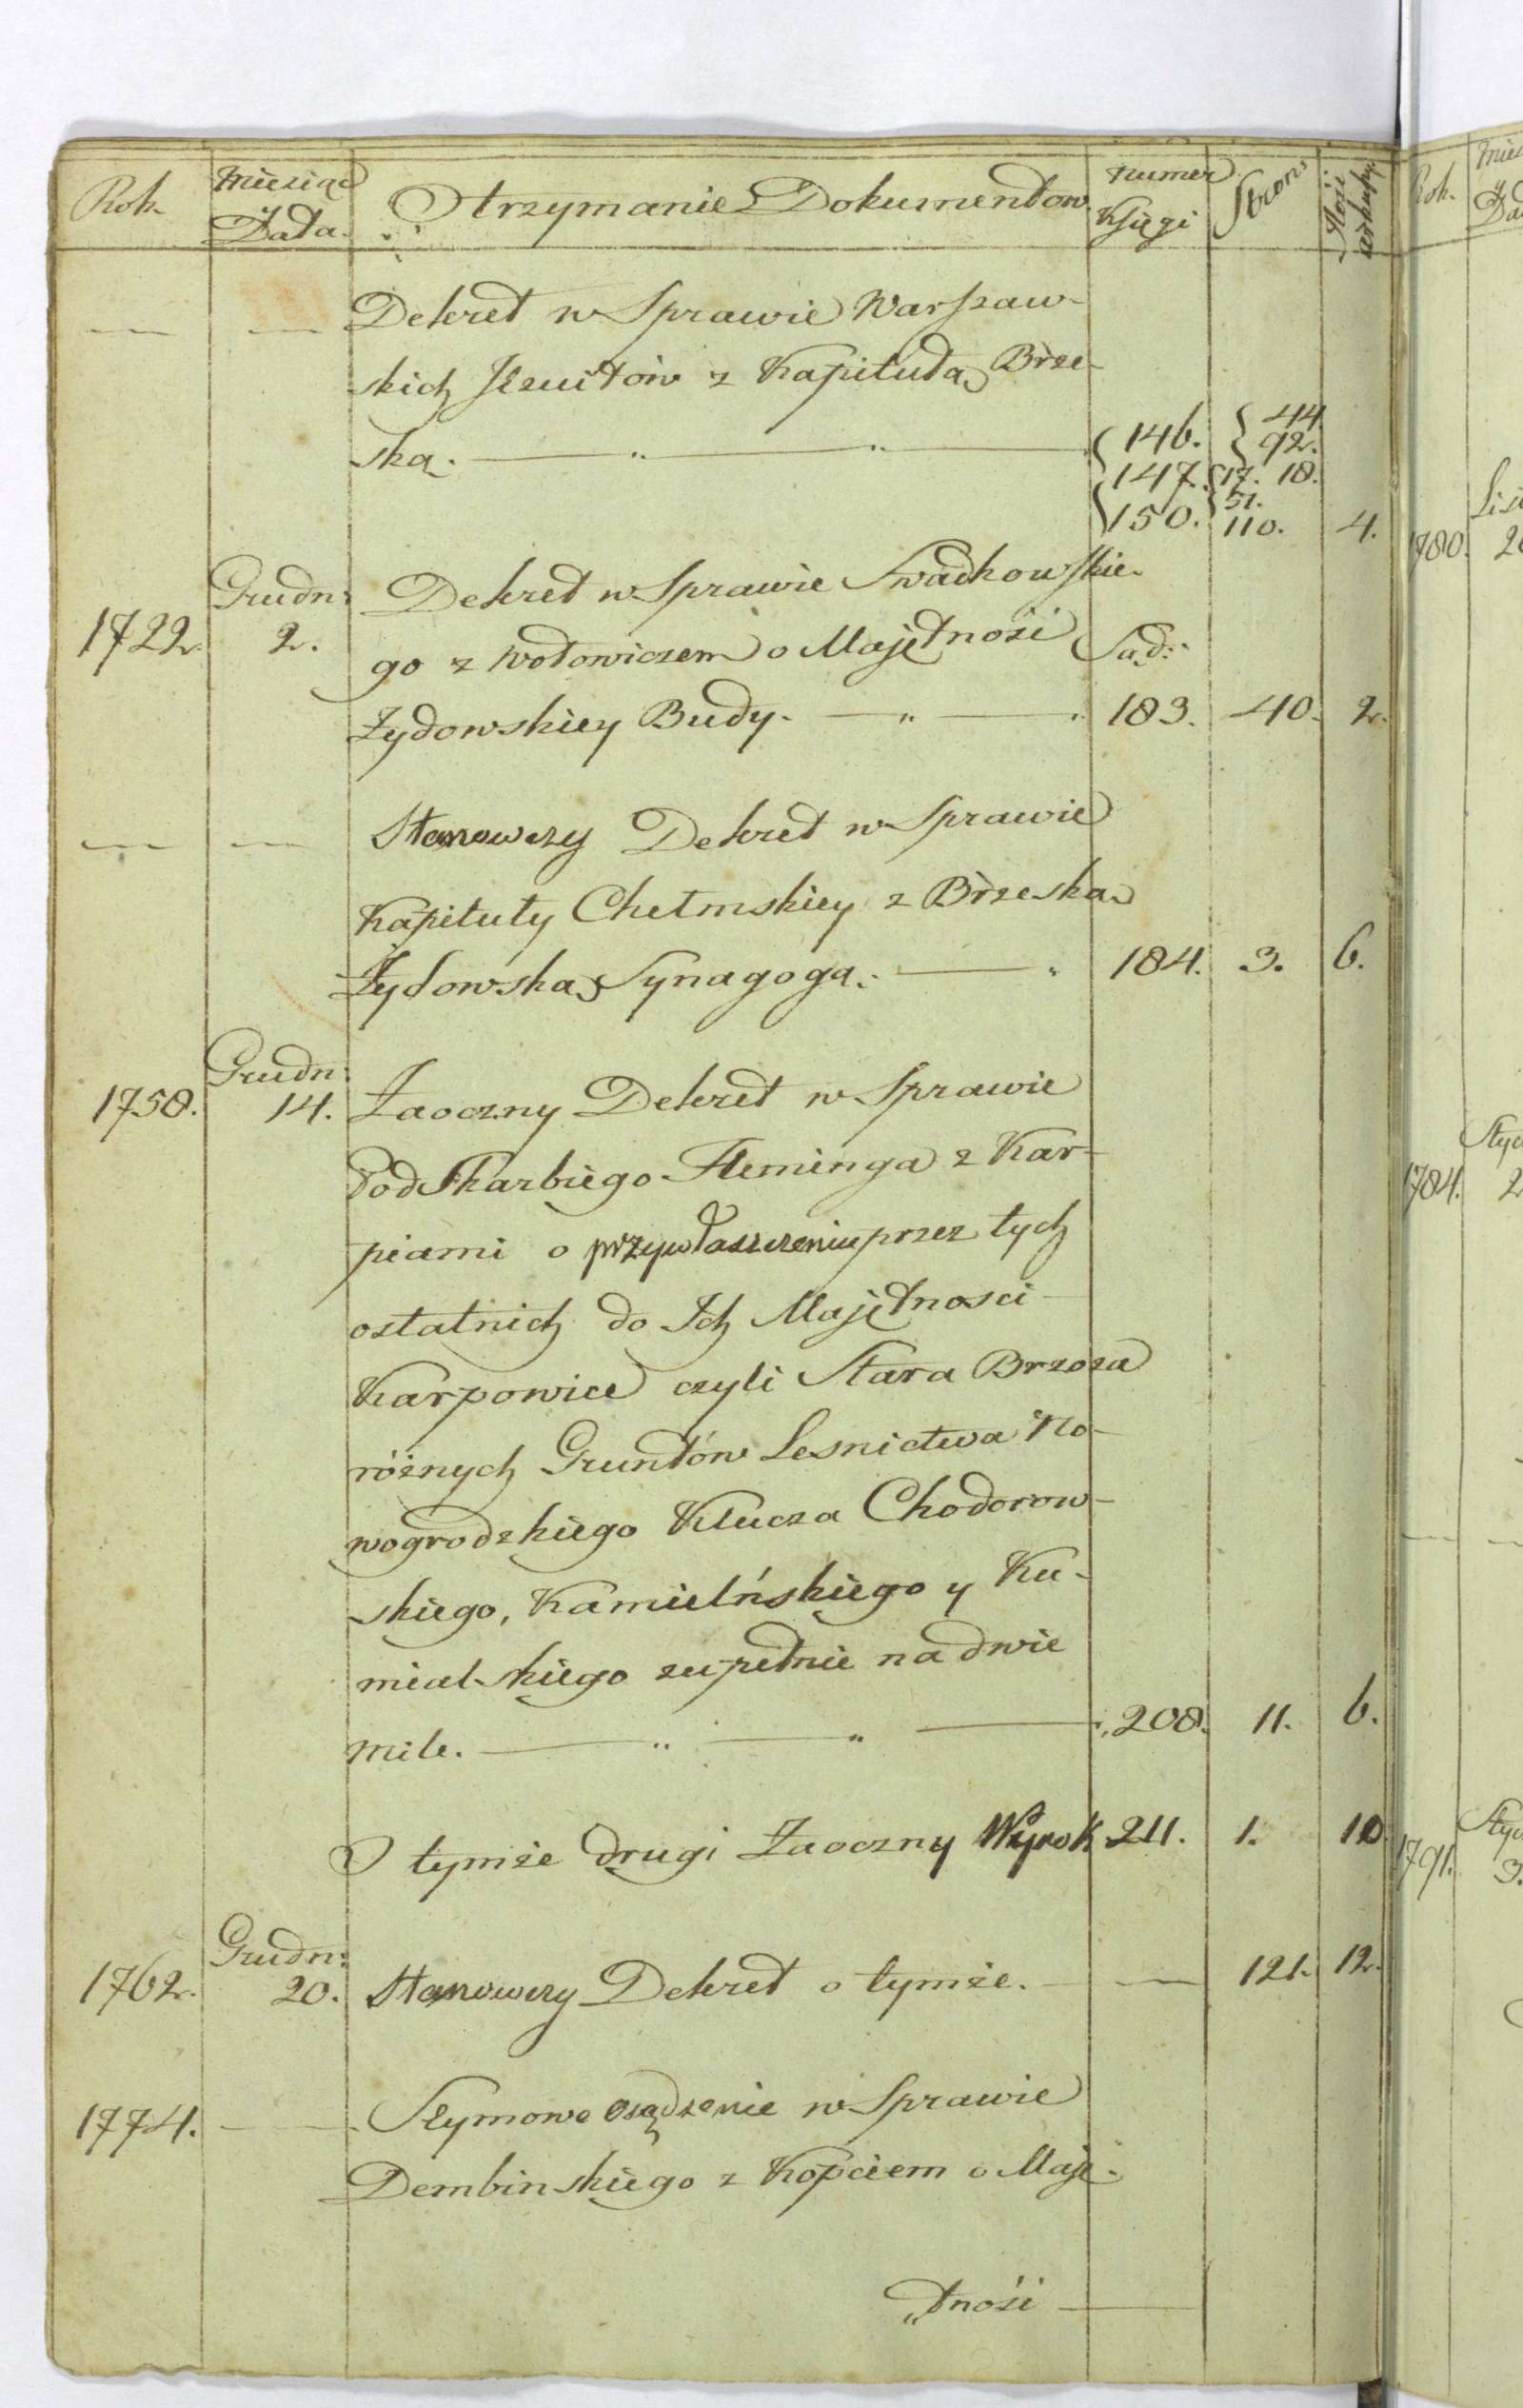 Rok. Miesiąc Data. Otrzymanie Dokumentow numer Księgi Strony Ilość arkuszy
Dekret w Sprawie Warszaw-
skich Jezuitów z Kapitułą Brze-
ską. 146. 44. 92.
147. 17. 18.
150. 51. 110. 4.
Grudn: Dekret w Sprawie Swadkowskie-
1722. 2. go z Wołowiczem o Majętnośi Sąd:
Żydowskiey Budy. 183. 40. 2.
Stanowczy Dekret w Sprawie
Kapituły Chełmskiey z Brzeską
Żydowską Synagogą. 184. 3. 6.
Grudn:
1758. 14. Zaoczny Dekret w Sprawie
Podskarbiego Fleminga z Kar-
piami o przywłaszczeniu przez tych
ostatnich do Ich Majętnosci
Karpowice czyli Stara Brzoza
róźnych Gruntów Lesnictwa No-
wogrodzkiego Klucza Chodorow-
skiego, Kamieńskiego y Ku-
mialskiego zupełnie na dwie
mile. 208. 11. 6.
O tymże drugi Zaoczny Wyrok 211. 1. 10
Grudn:
1762. 20. Stanowczy Dekret o tymże. 121. 12.
1774. Seymowe osądzenie w Sprawie
Dembinskiego z Kopciem o Maję-
„tnośi
Rok.
1780.
1784.
1791.